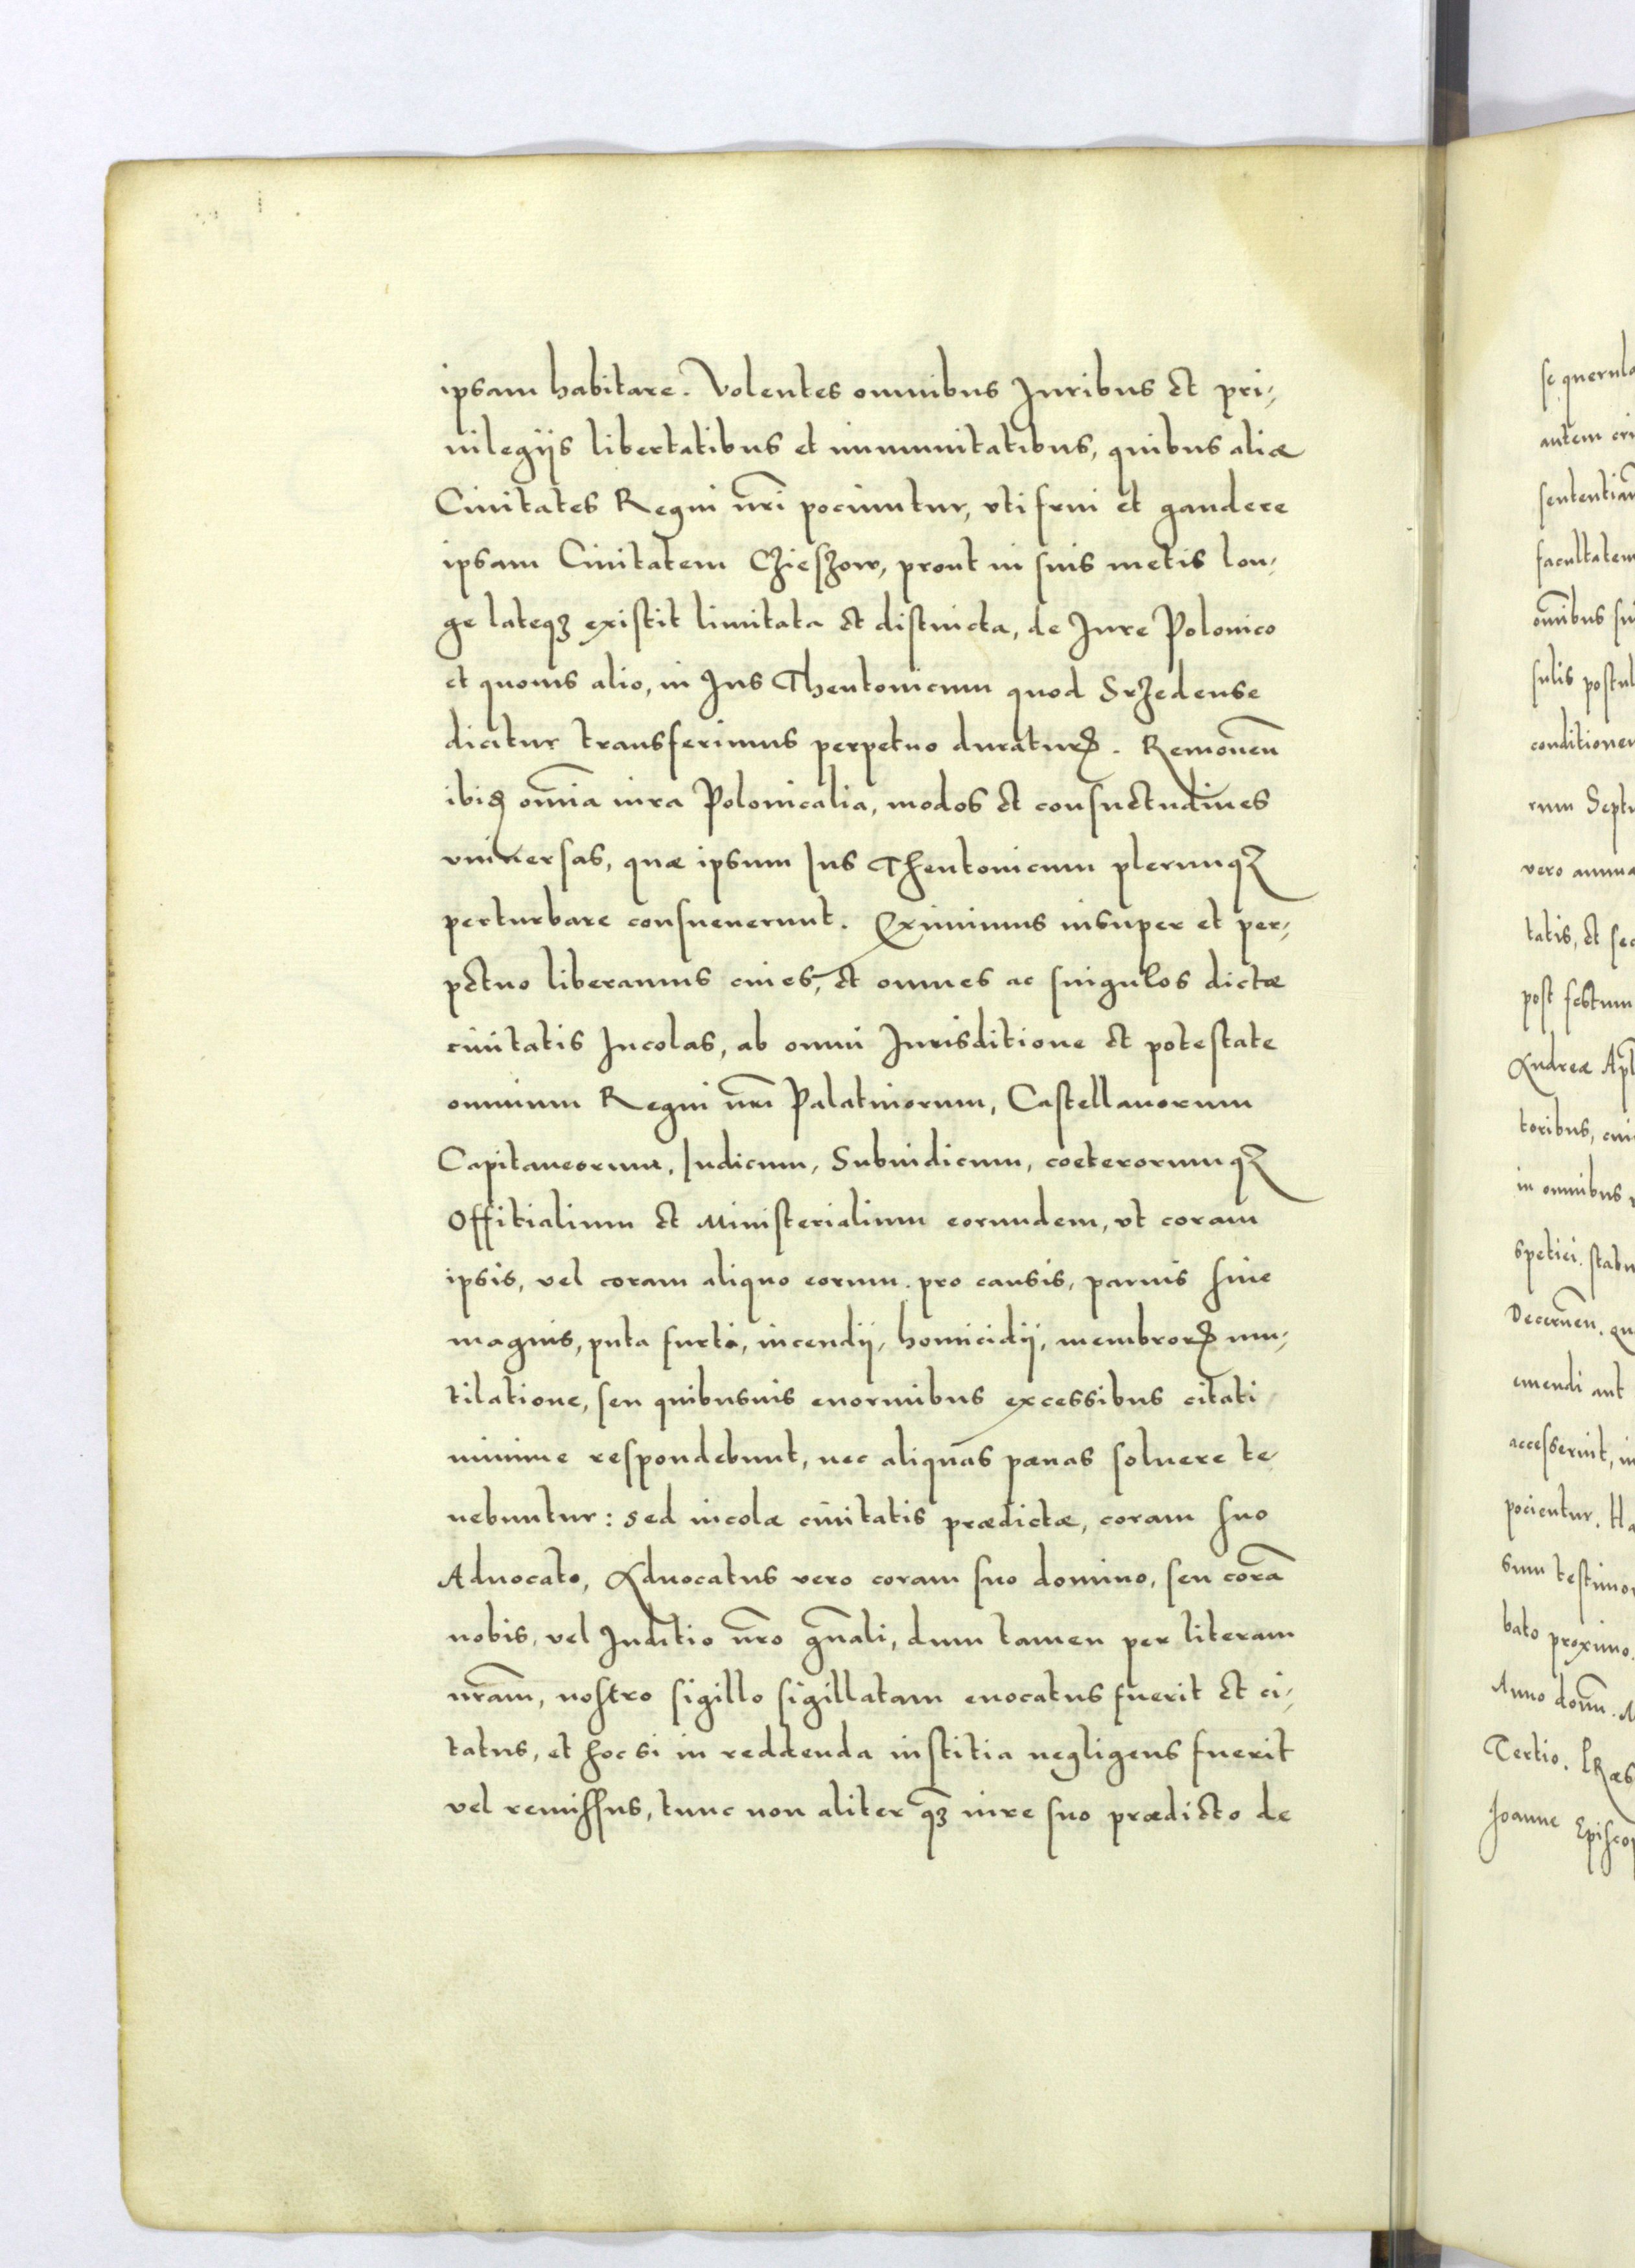 ipsam habitare. Volentes omnibus Juribus et pri-
uilegijs libertatibus et immunitatibus, quibus aliæ
Ciuitates Regni nr̃i pociuntur, vti frui et gaudere
ipsam Ciuitatem CziesZow, prout in suis metis lon-
ge lateqꝫ existit limitata et distincta, de Jure Polonico
et quouis alio, in Jus Theutonicum quod Srzedense
dicitur transferimus perpetuo duraturꝝ. Remoueñ
ibiꝫ om̃ia iura Polonicalia, modos et consuetudines
vniuersas, quæ ipsum Ius Theutonicum plerumqꝫ
perturbare consueuerunt. Eximimus insuper et per-
petuo liberamus ciues, et omnes ac singulos dictæ
ciuitatis Incolas, ab omni Jurisditione et potestate
omnium Regni nr̃i Palatinorum, Castellanorum
Capitaneorum, Iudicum, Subiudicum, coeterorumqꝫ
Offitialium et Ministerialium eorundem, vt coram
ipsis, vel coram aliquo eorum pro causis, paruis siue
magnis, puta furti, incendij, homicidij, membrorꝝ mu-
tilatione, seu quibusuis enormibus excessibus citati
minime respondebunt, nec aliquas pænas soluere te
nebuntur: sed incolæ ciuitatis prædictæ, coram suo
Aduocato, Aduocatus vero coram suo domino, seu corã
nobis, vel Juditio nr̃o gñali, dum tamen per literam
nr̃am, nostro sigillo sigillatam euocatus fuerit et ci-
tatus, et hoc si in reddenda iustitia negligens fuerit
vel remissus, tunc non aliter qꝫ iure suo prædicto de
se querula
autem cri
sententiam
facultatem
om̃ibus su
sulis postul
conditionem
rum Septu
vero annua
tatis, et sec
post festum
Andreæ Apl̃
toribus, cui
in omnibus
spetici. stabu
Decerneñ. qu
emendi aut
accesserint, in
pocientur. Ha
sum testimon
bato proximo.
Anno domĩ. M
Tertio. PRæs
Joanne Episcop